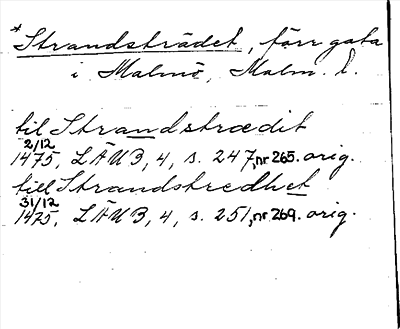 *Strandsträdet, förr gata
i Malmö, Malm. l.
til Strandstrædit
2/12
1475, LÄUB, 4, s. 247, nr 265. orig.
till Strandstredhet
31/12
1475, LÄUB, 4, s. 251, nr 269. orig.